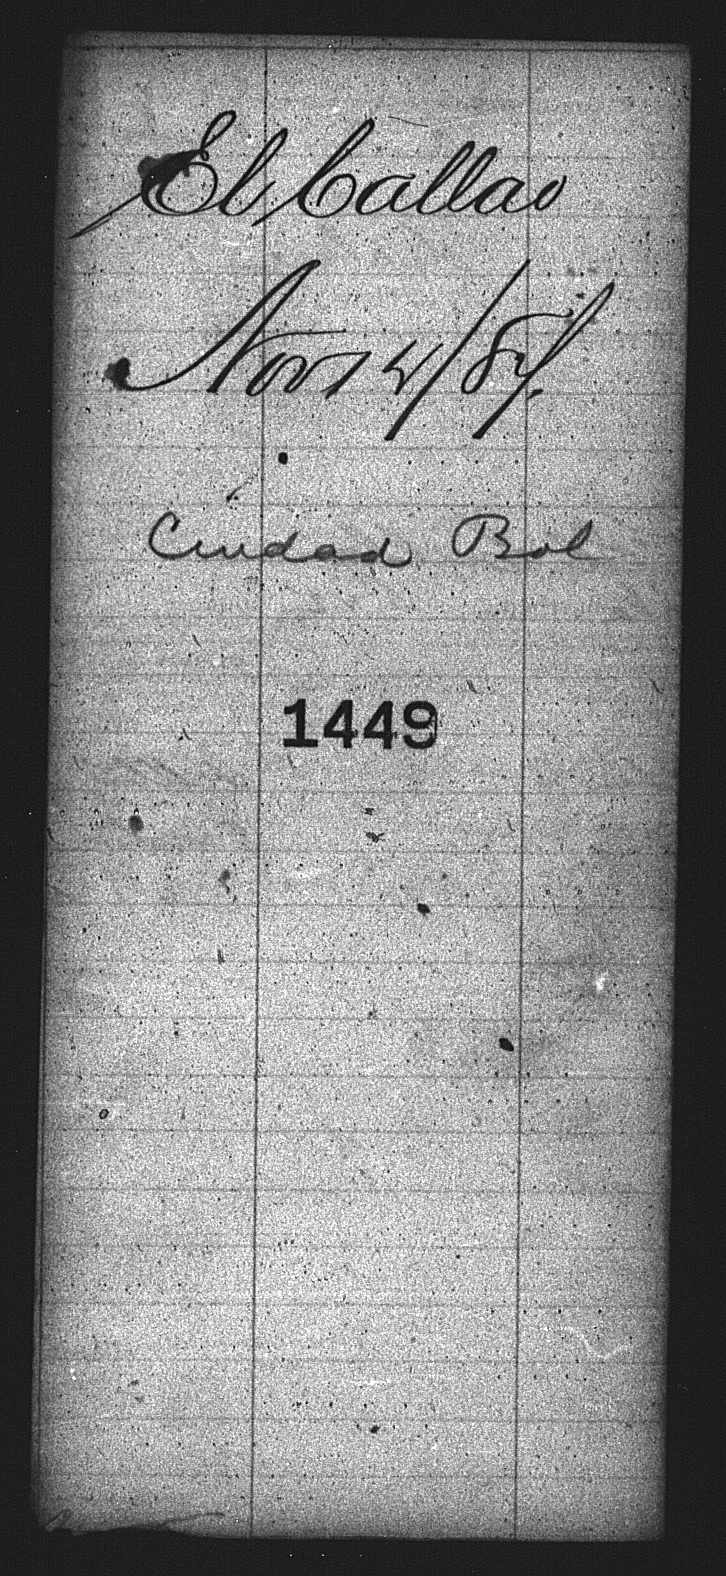 El Callao
Nov 14/87.
Ciudad Bol
1449